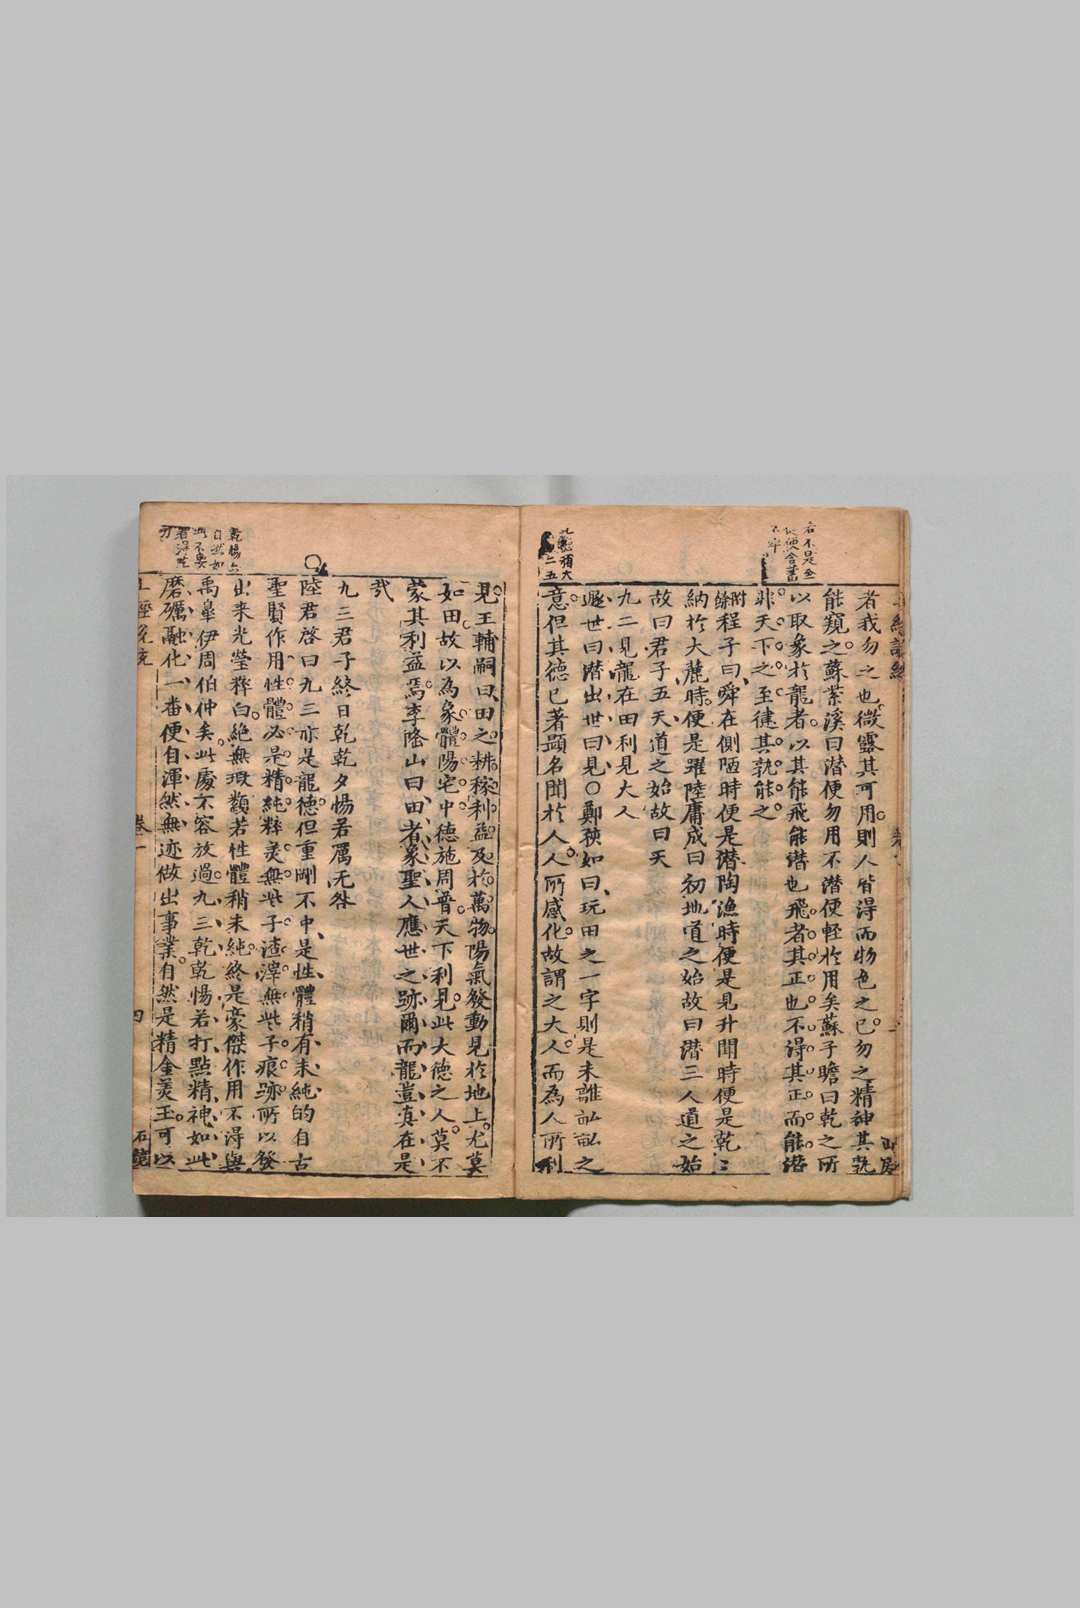 者我勿之也微露其可用則人皆得而物色之已勿之精神其孰
能窺之蘇紫溪曰潛便勿用不潛便輕於用矣蘇子瞻曰乾之所
以取象於龍者以其能飛能潛也飛者其正也不得其正而能潛
非天下之至健其孰能之
附錄程子曰舜在側陋時便是潛陶漁時便是見升聞時便是乾乾
納於大麓時便是躍陸庸成曰初地道之始故曰潛三人道之始
故曰君子五天道之始故曰天
九二見龍在田利見大人
遯世曰潛出世曰見○鄭孩如曰玩田之一字則是未離訟訟之
意但其德已著顯名聞於人人所感化故謂之大人而為人所利
見王輔嗣曰田之耕稼利益及於萬物陽氣發動見於地上尤莫
如田故以為象體陽宅中德施周普天下利見此大德之人莫不
蒙其利益焉李隆山曰田者象聖人應世之跡爾而龍豈真在是
哉
九三君子終日乾乾夕惕若厲无咎
陸君啓曰九三亦是龍德但重剛不中是性體稍有未純的自古
聖賢作用性體必是精純粹美無些子渣滓無些子痕跡所以發
出來光瑩粹白絕無瑕纇若性體稍未純終是豪傑作用不得與
禹皋伊周伯仲矣此處不容放過九三乾乾惕若打點精神如此
磨礪融化一番便自渾然無迹做出事業自然是精金美玉可以
卷一
四